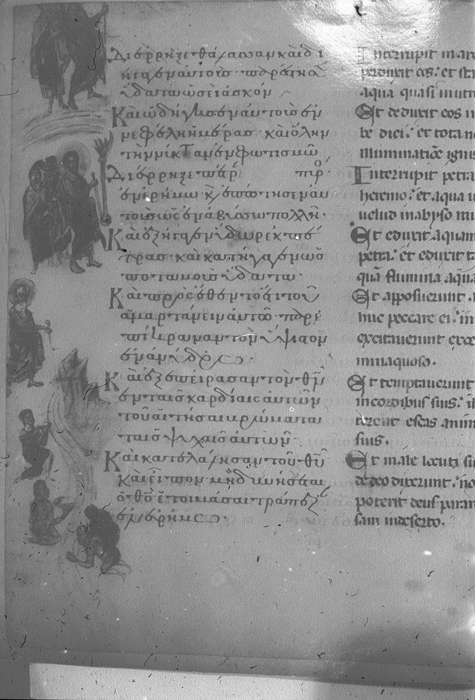 Διέρρηξε θάλασσαν καὶ δι
ὕδατα ὡσεὶ ἀσκόν
Καὶ ὡδήγησεν αὐτοὺς ἐν
νεφέλη ἡμέρας καὶ ὅλην
τὴν νύκτα ἐν φωτισμῶ
Διέρρηξε πέτραν
ἐν ἐρήμω καὶ ἐπότισεν αὐ
τοὺς ὡς ἐν ἀβύσσω πολλῆ·
Καὶ ἐξήγαγεν ὕδωρ ἐκ πέ
τρας καὶ κατήγαγεν ὡς
ποταμοὺς ὕδατα·
Καὶ προσέθεντο ἔτι τοῦ
ἁμαρτάνειν αὐτῶ παρε
πίκραναν τὸν ὕψιστον
ἐν ἀνύδρω·
Καὶ ἐξεπείρασαν τὸν θν
ἐν ταῖς καρδίαις αὐτῶν
τοῦ αἰτῆσαι βρώματα
ταῖς ψυχαῖς αὐτῶν·
Καὶ κατελάλησαν τοῦ θυ
καὶ εἶπον μὴ δυνήσεται
ὁ θς ἑτοιμάσαι τράπεζαν
ἐν ἐρήμω·
Interrupit mare
perduxit eos: et sta
aqua quasi in utre
Et deduxit eos in
be diei: et tota n
illuminatione ignis
Interrupit petra
heremo: et aqua
uelud in abysso mu
Et eduxit aquam
petra: et eduxit t
quā flumina aqua
Et apposuerunt
huc peccare ei: in
excitauerunt exce
in inaquoso.
Et temptauerunt
in cordibus suis: u
terent escas anim
suis.
Et male locuti su
de deo dixerunt: no
poterit deus parar
sam in deserto.